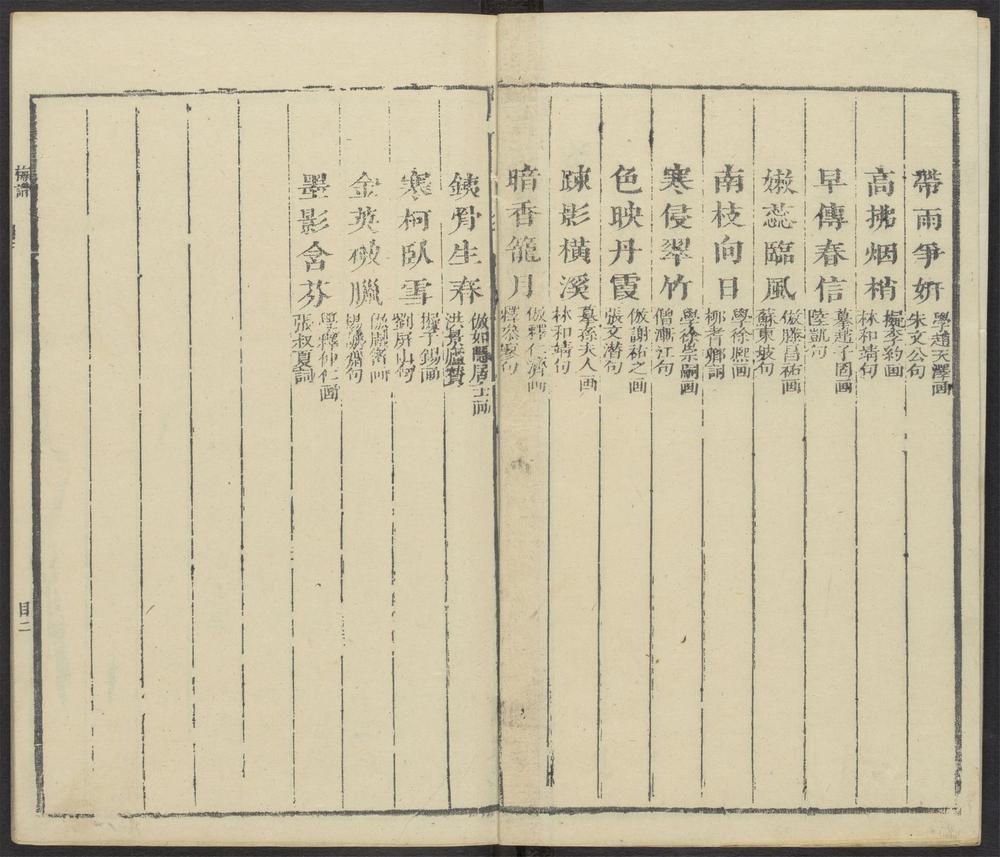 帶雨爭妍 學趙天澤画 朱文公句
高拂烟梢 擬李約画 林和靖句
早傳春信 摹趙子固画 陸凱句
嫩蕊臨風 倣滕昌祐画 蘇東坡句
南枝向日 學徐熙画 柳耆卿詞
寒侵翠竹 學徐崇嗣画 僧漸江句
色映丹霞 倣謝祐之画 張文潛句
踈影橫溪 摹孫夫人画 林和靖句
暗香籠月 倣釋仁濟画 釋參寥句
鉄骨生春 倣如隱居士画 洪景廬贊
寒柯臥雪 擬于錫画 劉屏山句
金英破臘 倣 画 楊誠齋句
墨影含芬 學釋仲仁画 張叔夏詞
梅譜
目二